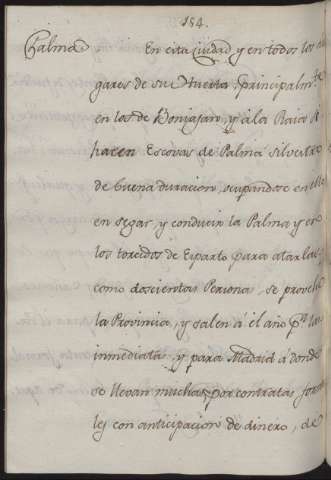 184.
Palma En esta Ciudad, y en todos los lu
gares de su Huerta principalmte
en los de Boniajan, y a la Raia se
hacen Escovas de Palma silvestre
de buena duracion, ocupandose en ello
en segar, y conducir la Palma y en
los torcidos de Esparto para atarlas
como doscientas Personas, se provehe
la Provincia, y salen á el año pa las
inmediatas, y para Madrid á donde
se llevan muchas por contratas forma
les con anticipacion de dinero, de